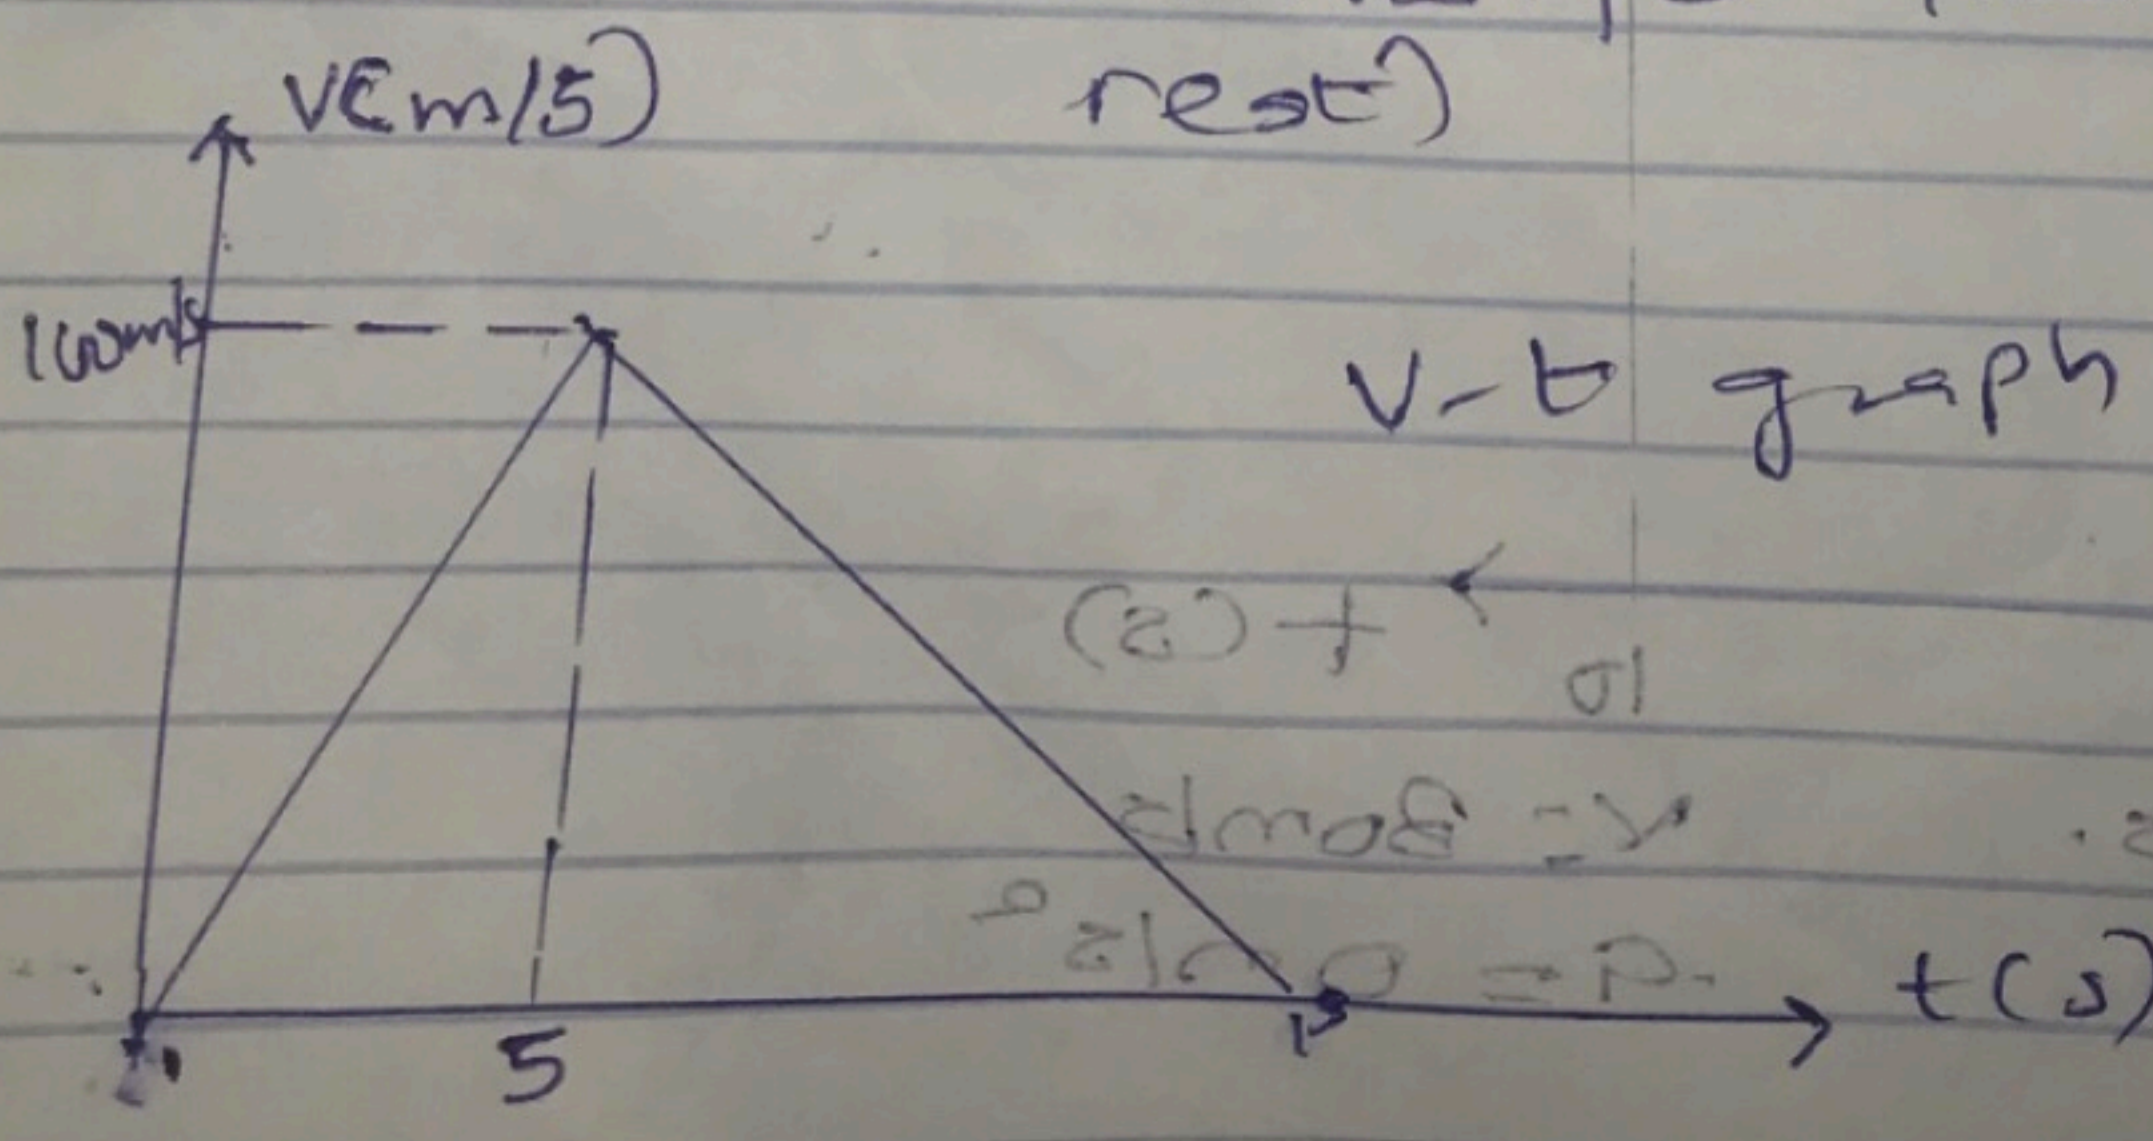 V(m/s)
rest)
100m/s
v-t graph
5
t(s)